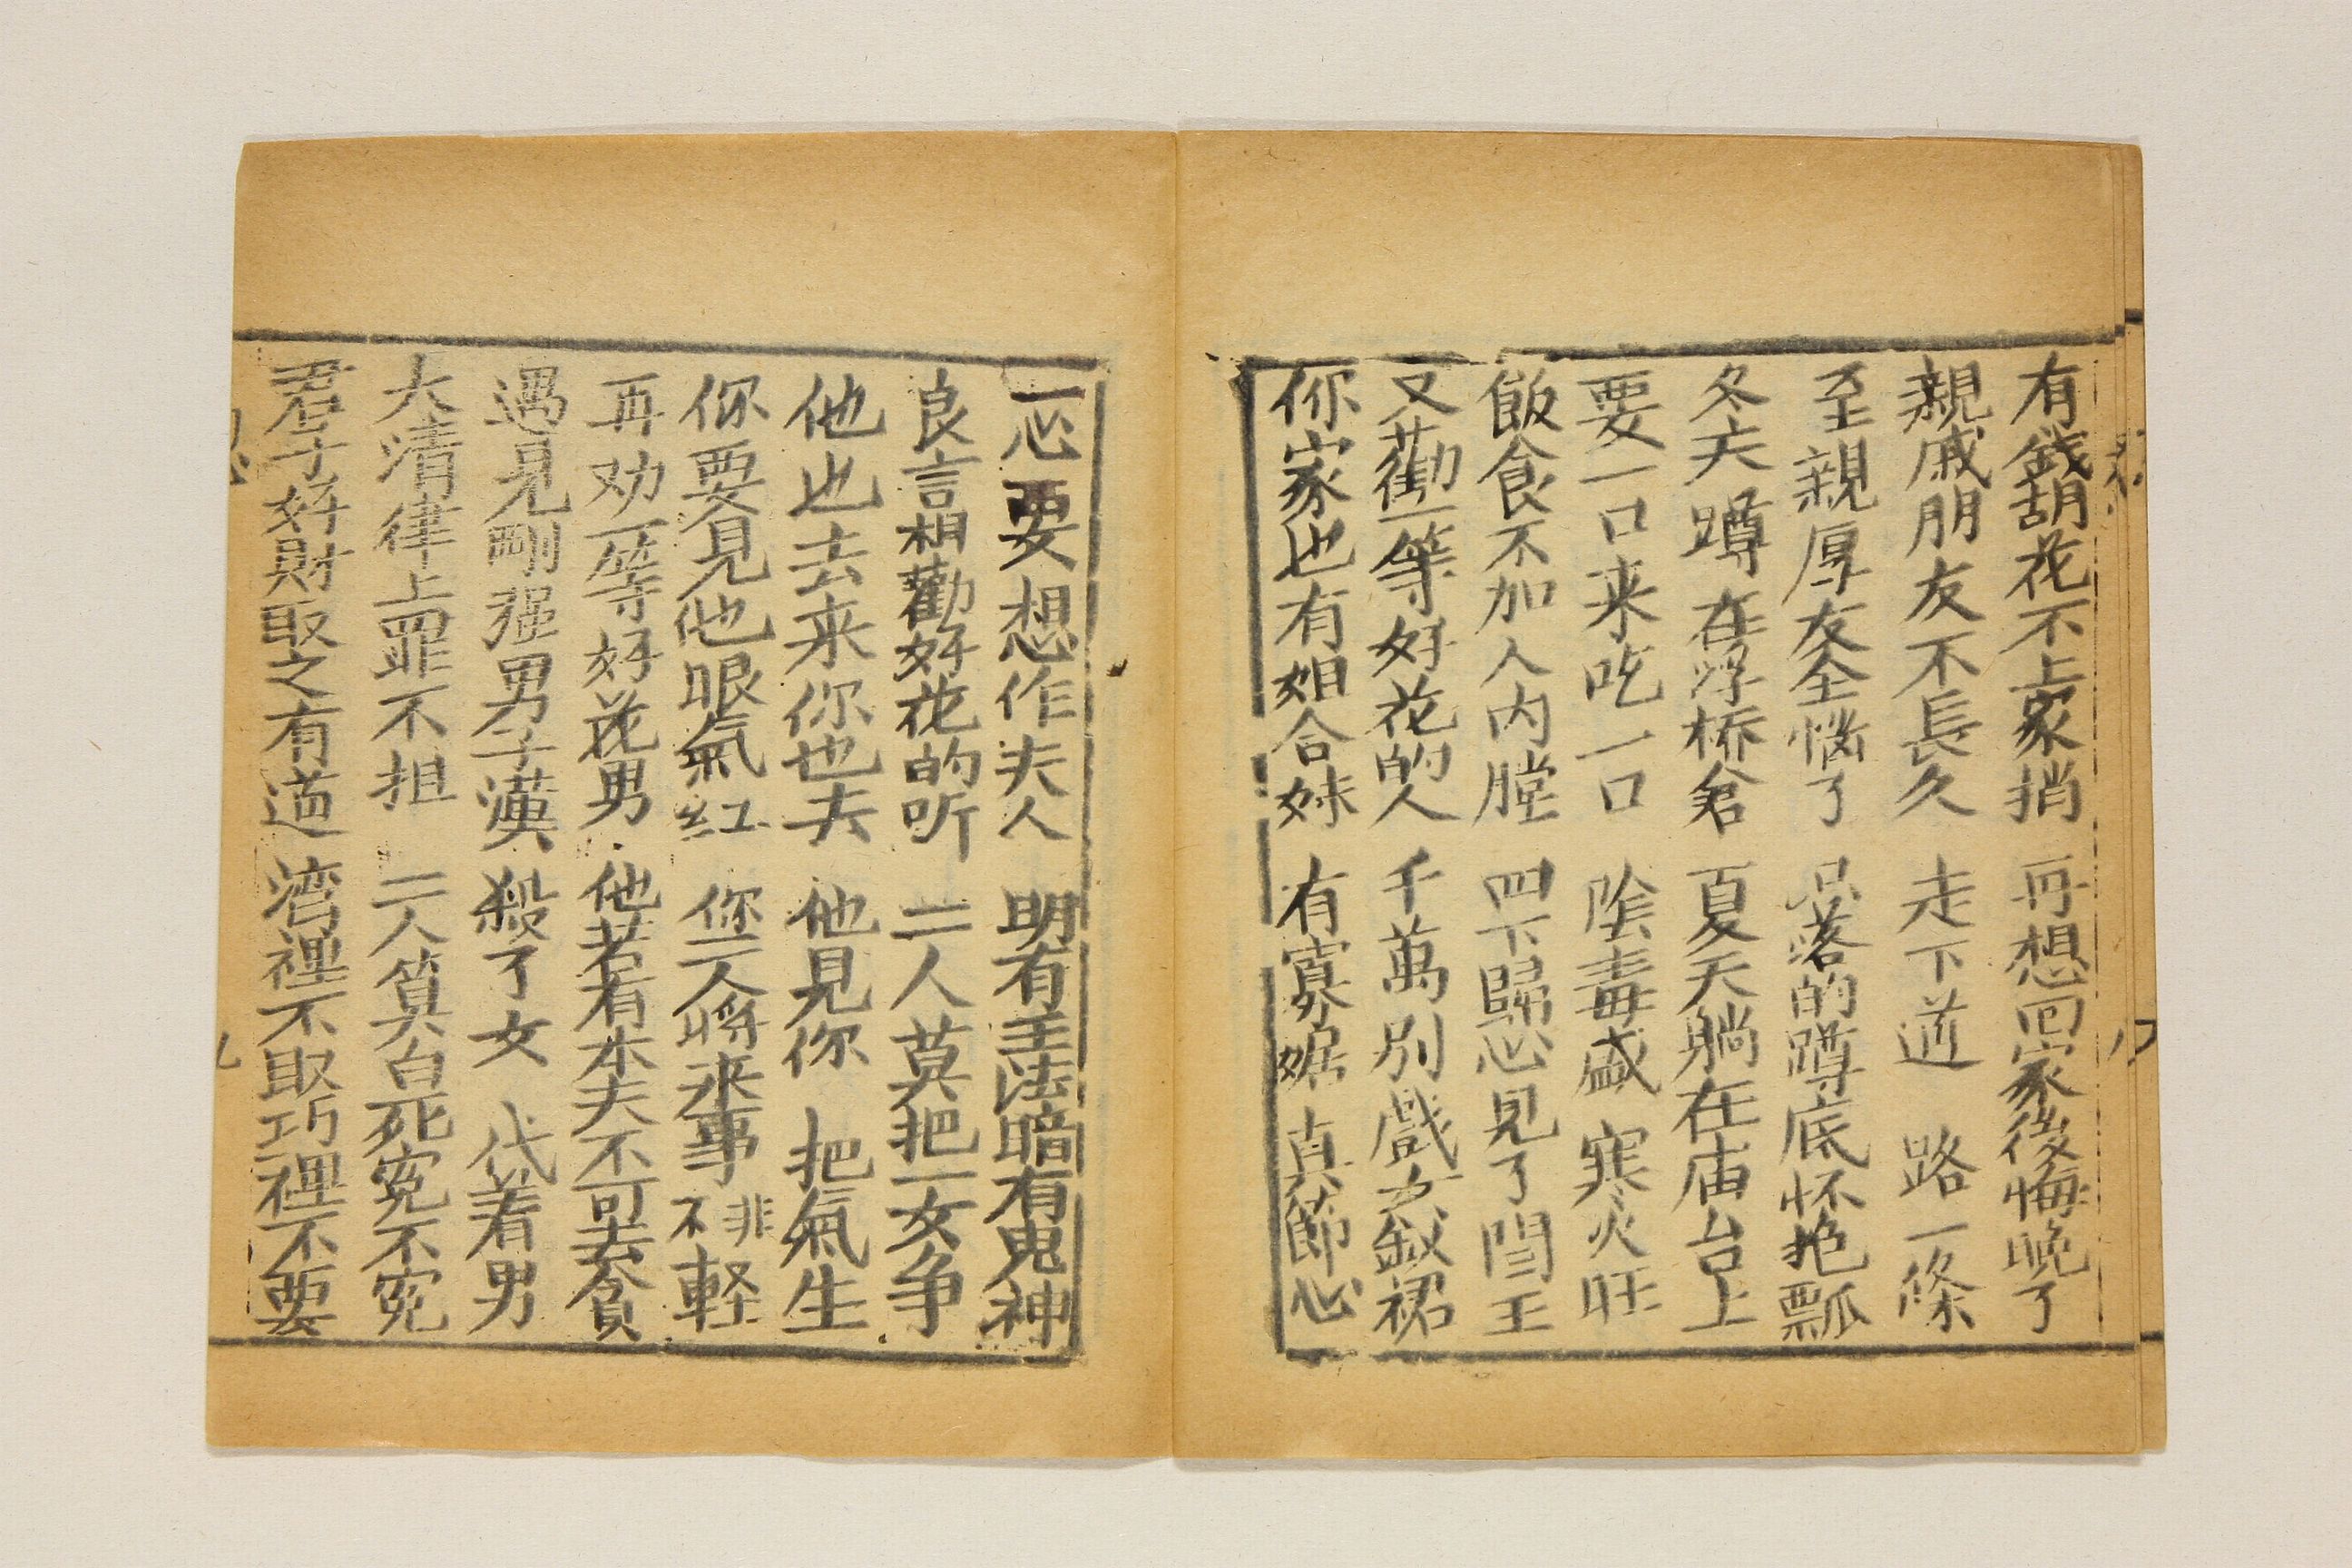 有錢胡花不上家捎 再想回家後悔晚了
親戚朋友不長久 走下道 路一條
至親厚友全惱了 只落的蹲底怀抱瓢
冬天蹲在浮桥倉 夏天躺在庙台上
要一口来吃一口 陰毒盛 寒火旺
飯食不加人内膛 四下歸心見了閻王
又勸一等好花的人 千萬別戲女釵裙
你家也有姐合妹 有寡㛿真節心
一心要想作夫人 明有王法暗有鬼神
良言相勸好花的听 二人莫把一女争
他也去来你也去 他見你 把氣生
你要見他眼氣红 您二人將来事不非軽
再劝一等好花男 他若有本夫不可去貪
遇見剛强男子漢 殺了女 代着男
大清律上罪不担 二人算白死寃不寃
君子好財取之有道 濟裡不取巧裡不要
八
九